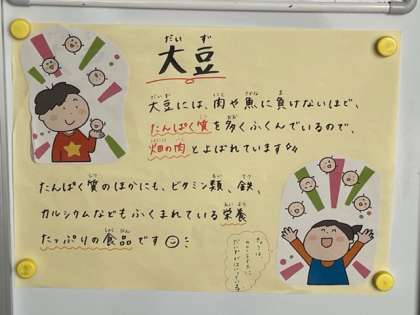 だいず
大豆
大豆には、肉や魚に負けないほど、
たんぱく質を多くふくんでいるので、
畑の肉とよばれています
たんぱく質のほかにも、ビタミン類、鉄、
カルシウムなどもふくまれている栄養
たっぷりの食品です